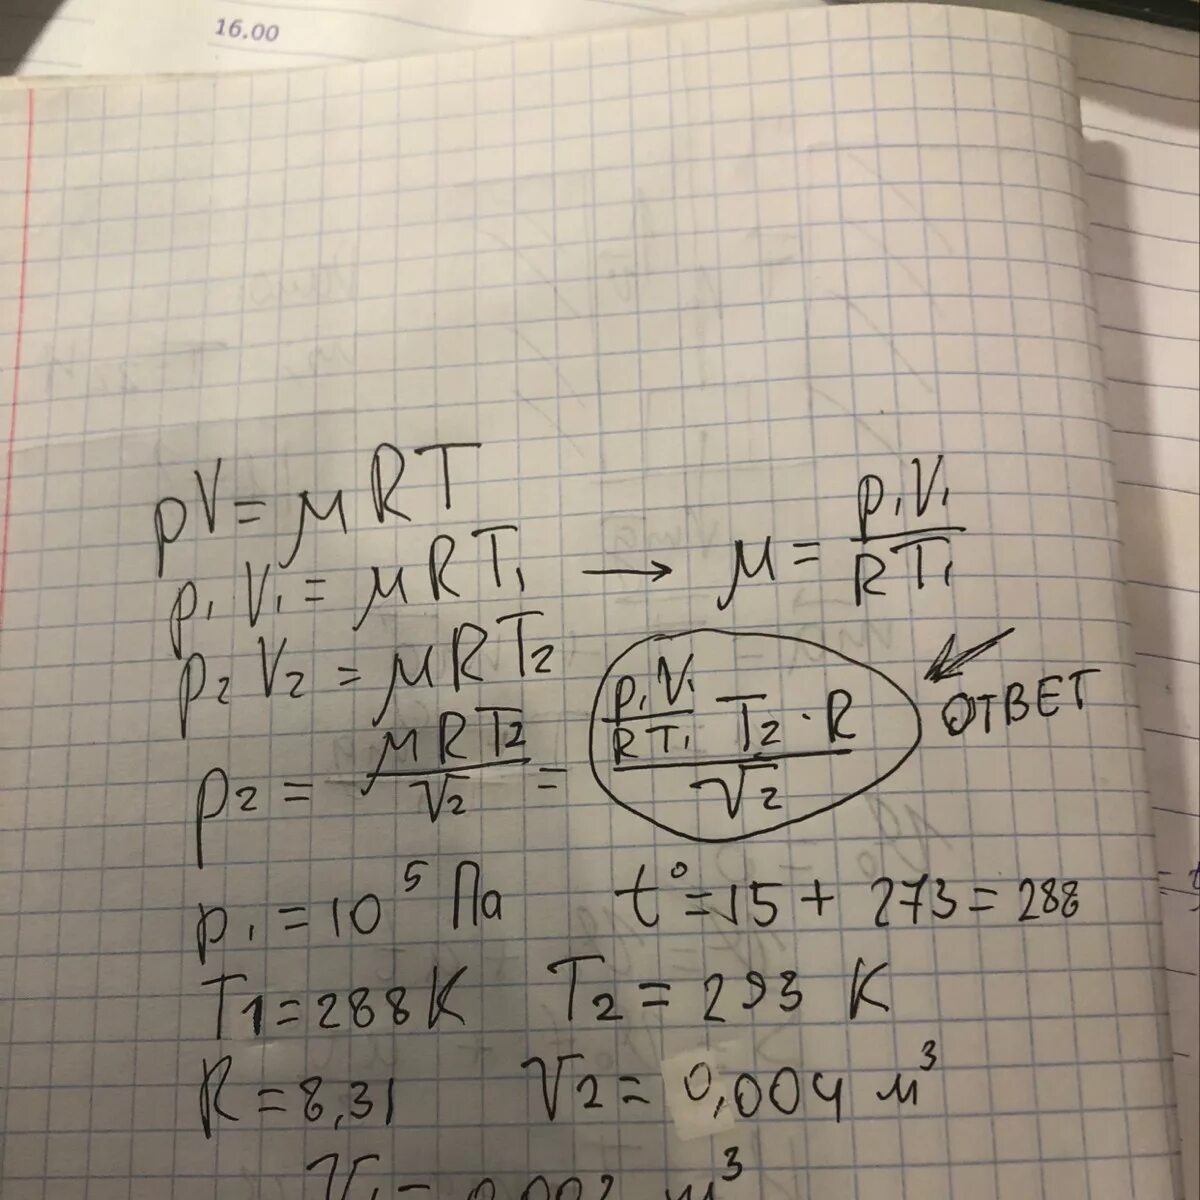 16.00
pV = μRT
p₁V₁ = μRT₁ → μ = p₁V₁ / RT₁
p₂V₂ = μRT₂
p₂ = μRT₂ / V₂ = (p₁V₁ / RT₁) T₂ · R / V₂ ОТВЕТ
p₁ = 10⁵ Па t° = 15 + 273 = 288
T1 = 288 K T₂ = 293 K
R = 8,31 V2 = 0,004 м³
V₁ = м³